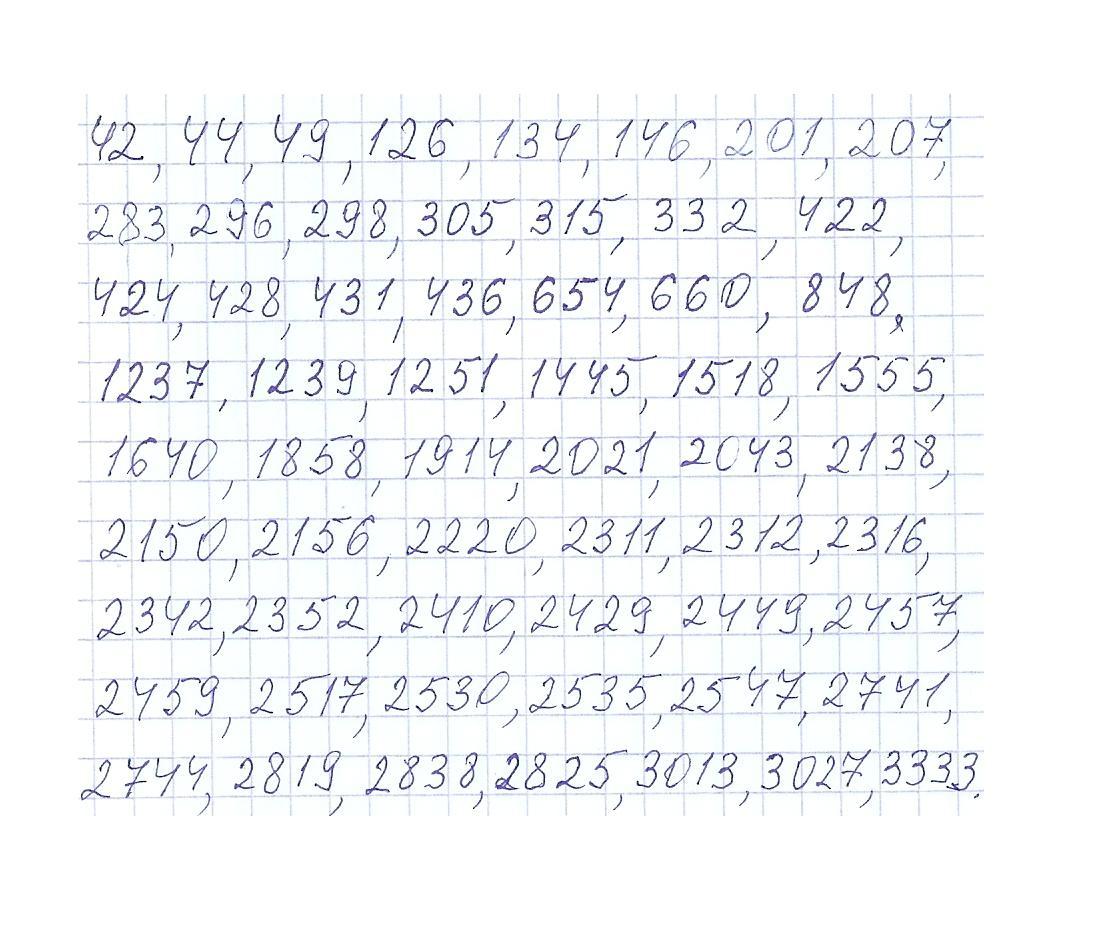 42, 44, 49, 126, 134, 146, 201, 207,
283, 296, 298, 305, 315, 332, 422,
424, 428, 431, 436, 654, 660, 848,
1237, 1239, 1251, 1445, 1518, 1555,
1640, 1858, 1914, 2021, 2043, 2138,
2150, 2156, 2220, 2311, 2312, 2316,
2342, 2352, 2410, 2429, 2449, 2457,
2459, 2517, 2530, 2535, 2547, 2741,
2744, 2819, 2838, 2825, 3013, 3027, 3333.